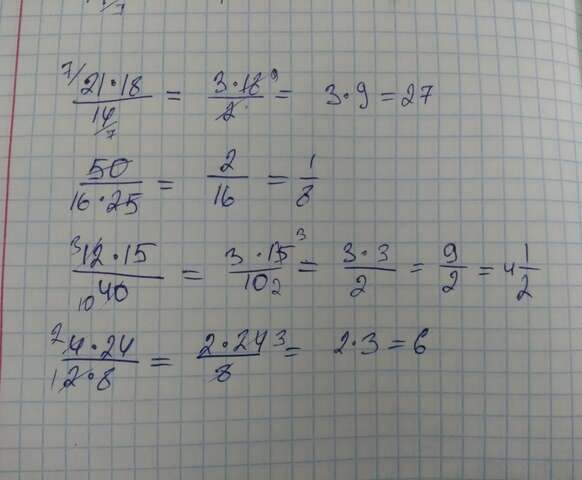 7/ 21·18 / 14 /7 = 3·18 9 / 2 = 3·9 = 27
50 / 16·25 = 2 / 16 = 1 / 8
3 12·15 / 10 40 = 3·15 3 / 10 2 = 3·3 / 2 = 9 / 2 = 4 1 / 2
2 4·24 / 1 2·8 = 2·24 3 / 8 = 2·3 = 6